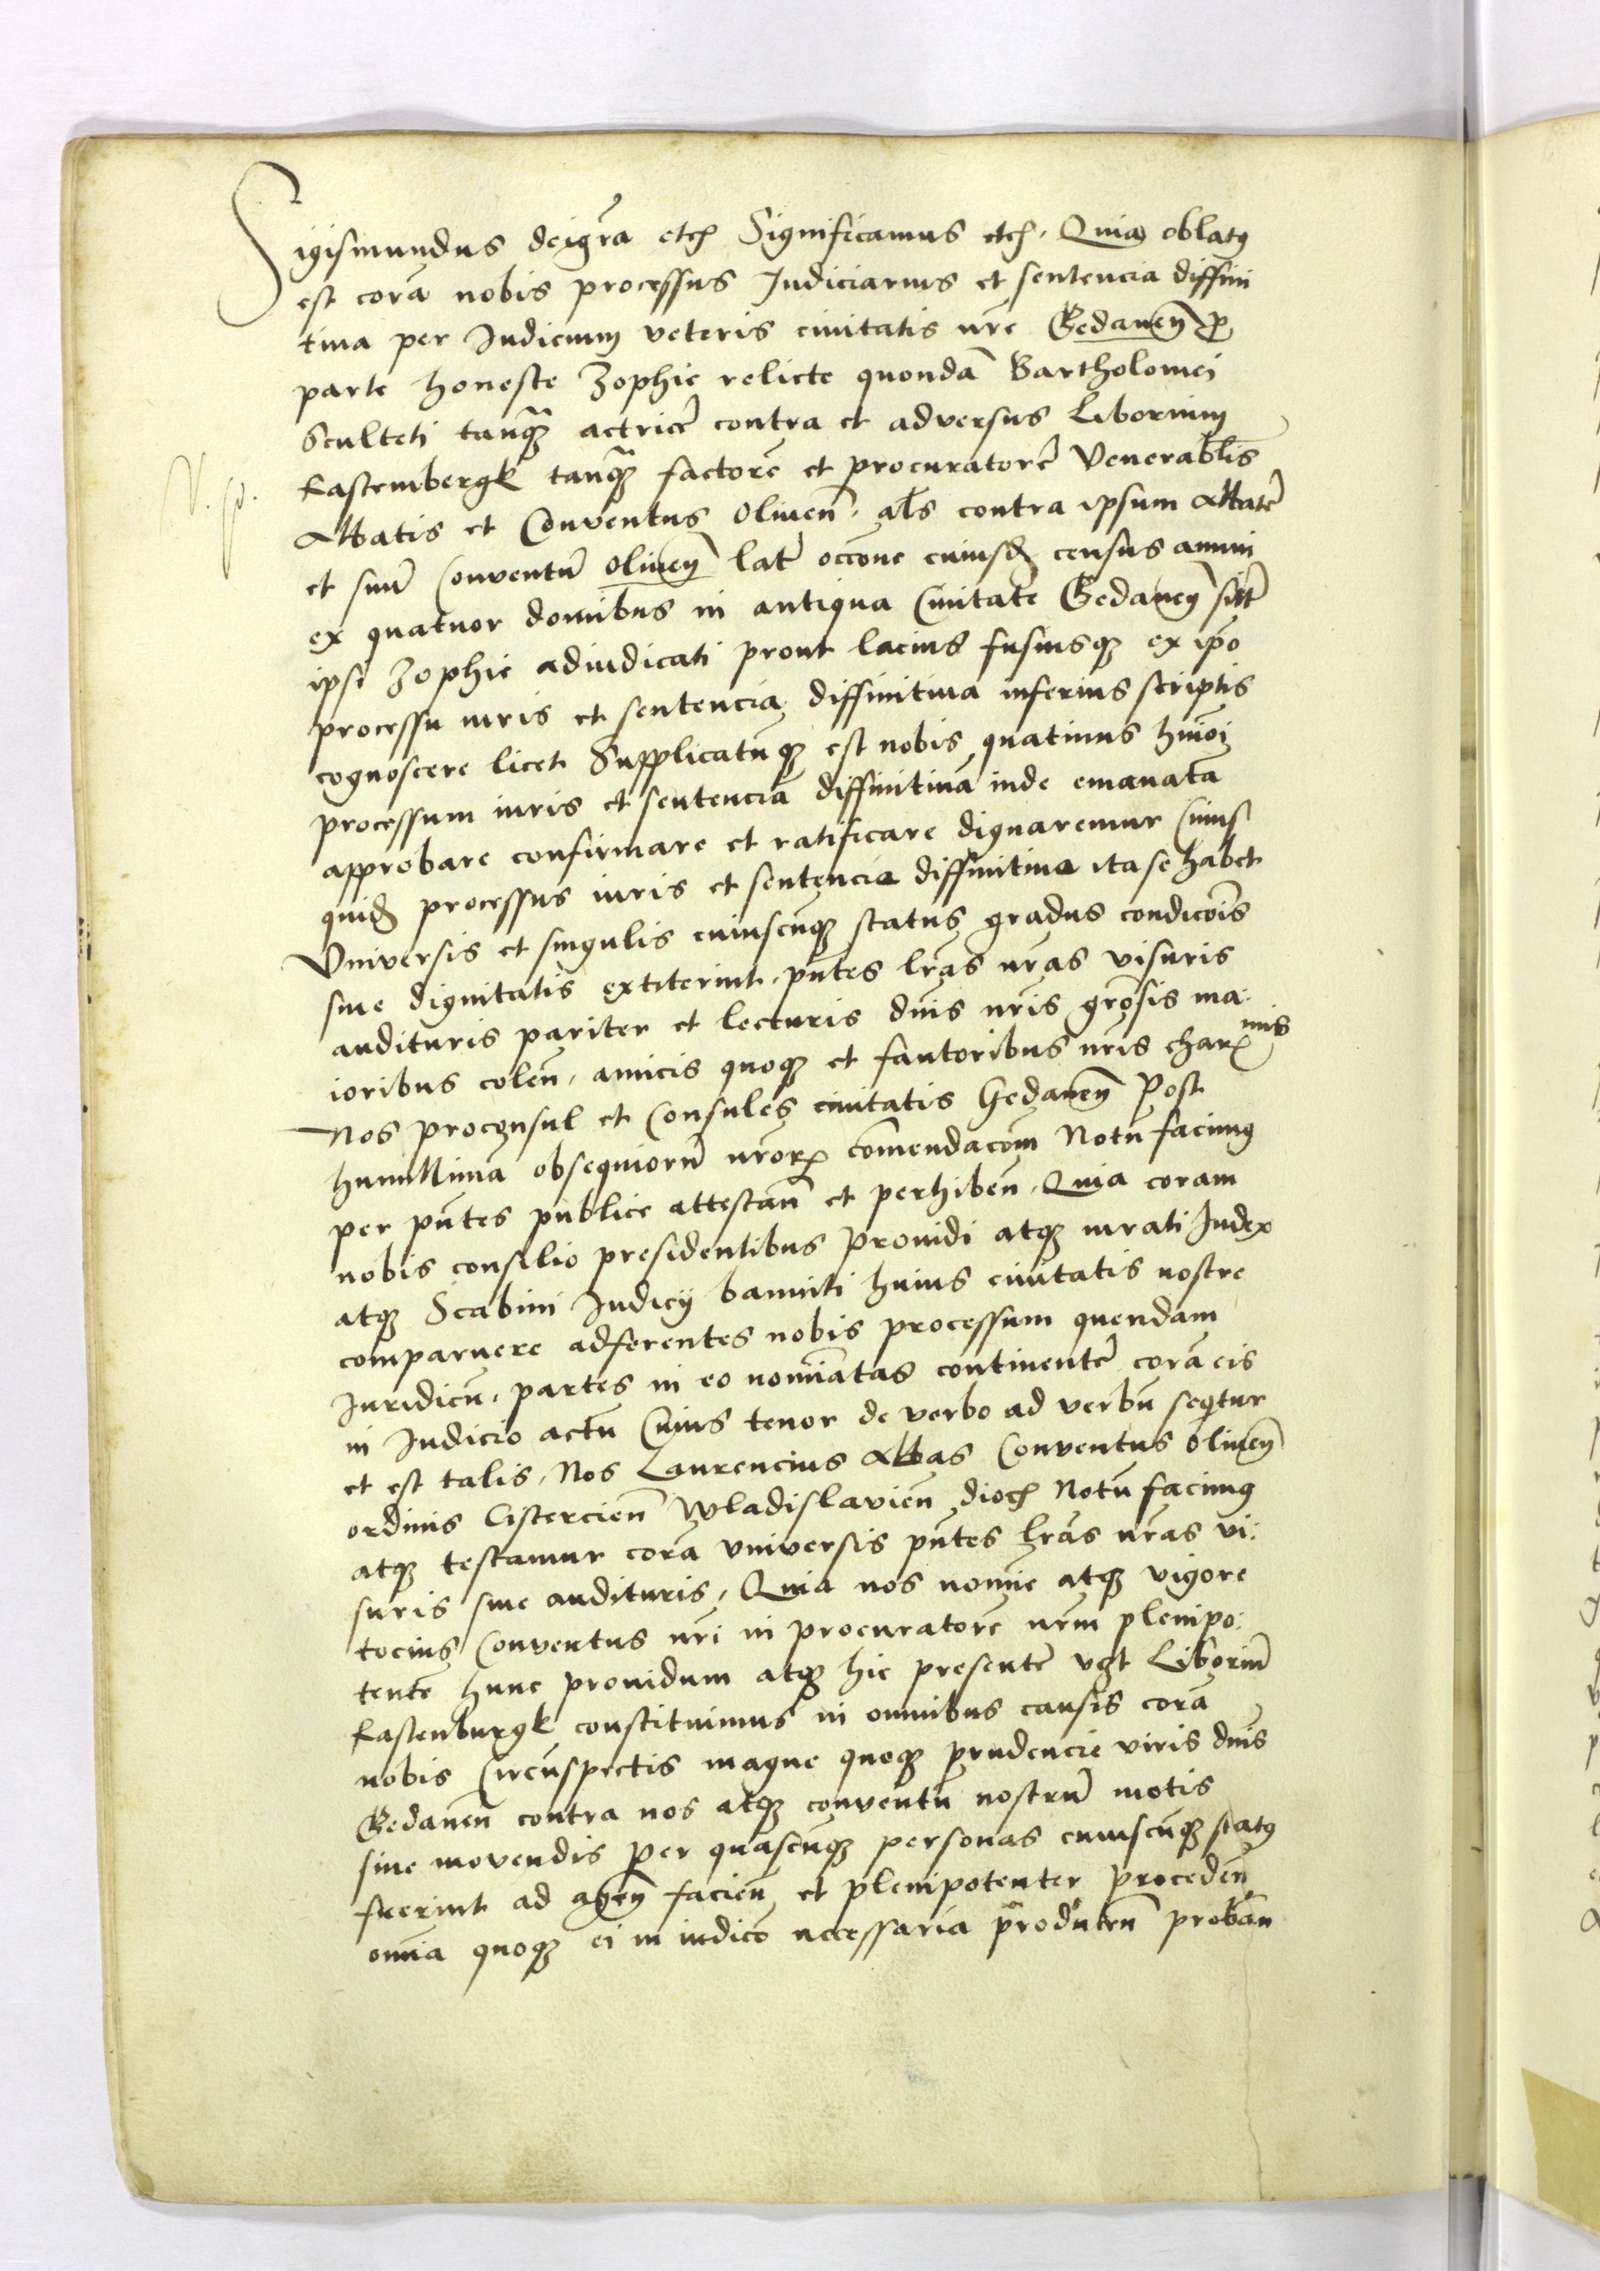 Sigismundus dei gr̃a etc̃ Significamus etc̃. Quia oblatꝰ
est corã nobis processus Judiciarius et sentencia diffini
tiua per Judicium veteris ciuitatis nr̃e Gedaneñ ꝓ
parte honeste Zophie relicte quondã Bartholomei
Sculteti tanꝗ̃ actricẽ contra et adversus Liborium
Rastembergk tanꝗ̃ factorẽ et procuratorẽ Venerabl̃is
Abbatis et Conventus Oliueñ. als̃ contra ipsum Abbatẽ
et suũ Conventũ Oliueñ latẽ occõne cuiusdã census annui
ex quatuor domibus in antiqua Ciuitate Gedaneñ sitt̃
ipsi Zophie adiudicati prout lacius fusiusqꝫ ex ip̃o
processu iuris et sentencia diffinitiua inferius scriptis
cognoscere licet Supplicatũqꝫ est nobis quatinus hmõi
processum iuris et sentenciã diffinitiuã inde emanatã
approbare confirmare et ratificare dignaremur Cuius
quidẽ processus iuris et sentencia diffinitiua ita se habet
Vniversis et singulis cuiuscũqꝫ status gradus condicõis
siue dignitatis extiterint. pñtes lr̃as nr̃as visuris
audituris pariter et lecturis dñis nr̃is gr̃osis ma:
ioribus coleñ. amicis quoqꝫ et fautoribus nr̃is charꝭmis
Nos proconsul et Consules ciuitatis Gedaneñ Post
humillimã obsequiorũ nr̃orꝝ cõmendacõm Notũ facimꝰ
per pñtes publice attestañ et perhibeñ. Quia coram
nobis consilio presidentibus prouidi atqꝫ iurati Judex
atqꝫ Scabini Judicij banniti huius ciuitatis nostre
comparuere adferentes nobis processum quendam
Juridicũ. partes in eo nomĩatas continentẽ corã eis
in Judicio actũ Cuius tenor de verbo ad verbũ seqĩtur
et est talis. Nos Laurencius Abbas Conventus Oliueñ
ordinis Cistercieñ Wladislavieñ dioc̃ Notũ facimꝰ
atqꝫ testamur corã vniversis pñtes lr̃as nr̃as vi:
suris siue audituris. Quia nos nomĩe atqꝫ vigore
tocius Conventus nr̃i in procuratorẽ nr̃m plenipo:
tentẽ hunc prouidum atqꝫ hic presentẽ vꝫt Liboriũ
Rastenburgk constituimus in omnibus causis corã
vobis Circũspectis magne quoqꝫ prudencie viris dñis
Gedaneñ contra nos atqꝫ conventũ nostrũ motis
siue movendis per quascũqꝫ personas cuiuscũqꝫ statꝰ
fuerint ad ageñ facieñ et plenipotenter procedeñ
omĩa quoqꝫ ei in iudicõ necessaria produceñ probañ